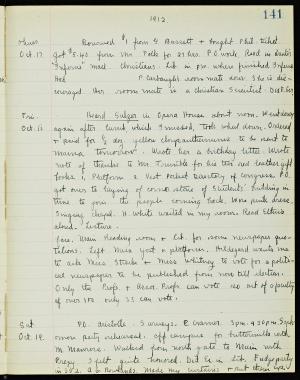 141
1912
Thurs. Borrowed $1 from G. Bassett + bought Phil. ticket
Oct. 17. Got $5.40 from Mr. Polk for 27 hrs. P.O. work. Read in Dante's
Inferno. Christians. Lib. in p.m. where finished Inferno
room mate over. She is dis-
couraged. Her room mate is a Christian Scientist.
Fri. Heard Sulzer in Opera House about noon. Went down
Oct. 18 again after lunch which I missed. Took wheel down. Ordered
+ paid for ½ doz yellow chrysanthemums to be sent to
mamma tomorrow. Wrote her a birthday letter. Wrote
note of thanks to Mr. Trumble for his red leather gift
books, 1 Platform & Vest Pocket Directory of Congress. P.O.
got over to laying of corner stone of Students' building in
time to join the people coming back. Wore pink dress.
Singing chapel. H. White waited in my room. Read letters
aloud. Lecture.
Main Reading room + Lib. for some newspaper ques-
tions. Left Miss a platform. Hildegard wants me
to ask Miss Stark + Miss Whitney to vote for a politi-
cal newspaper to be published from now till election.
Only the Profs. + Assoc. Profs can vote so out of faculty
of over 100 only 33 can vote.
Sat. P.O. Aristotle. Surveys. 3 p.m. 4:30 p.m.
Oct. 19. party rehearsal. Off campus for buttermilk with
M. Walked from north gate to Main with
Prexy. I felt quite honored. But be in Lib. Fudge party
in Made my curtains